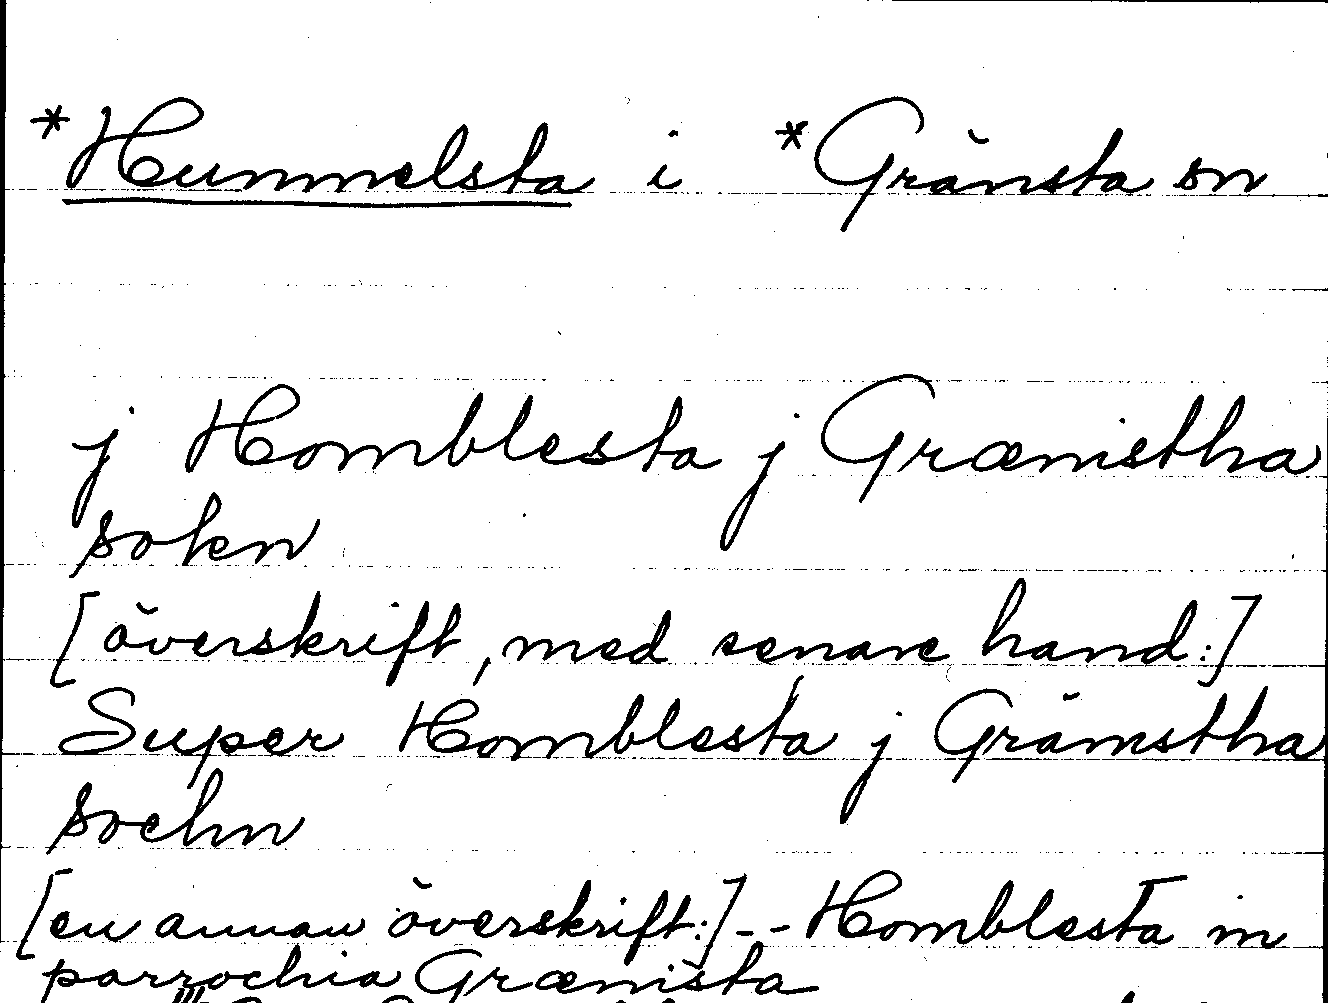 *Hummelsta i *Gränsta sn
j Homblesta j Grænistha
sokn
[överskrift, med senare hand:]
Super Homblesta j Grämstha
sochn
[en annan överskrift:] -- Homblesta in
parrochia Grænista